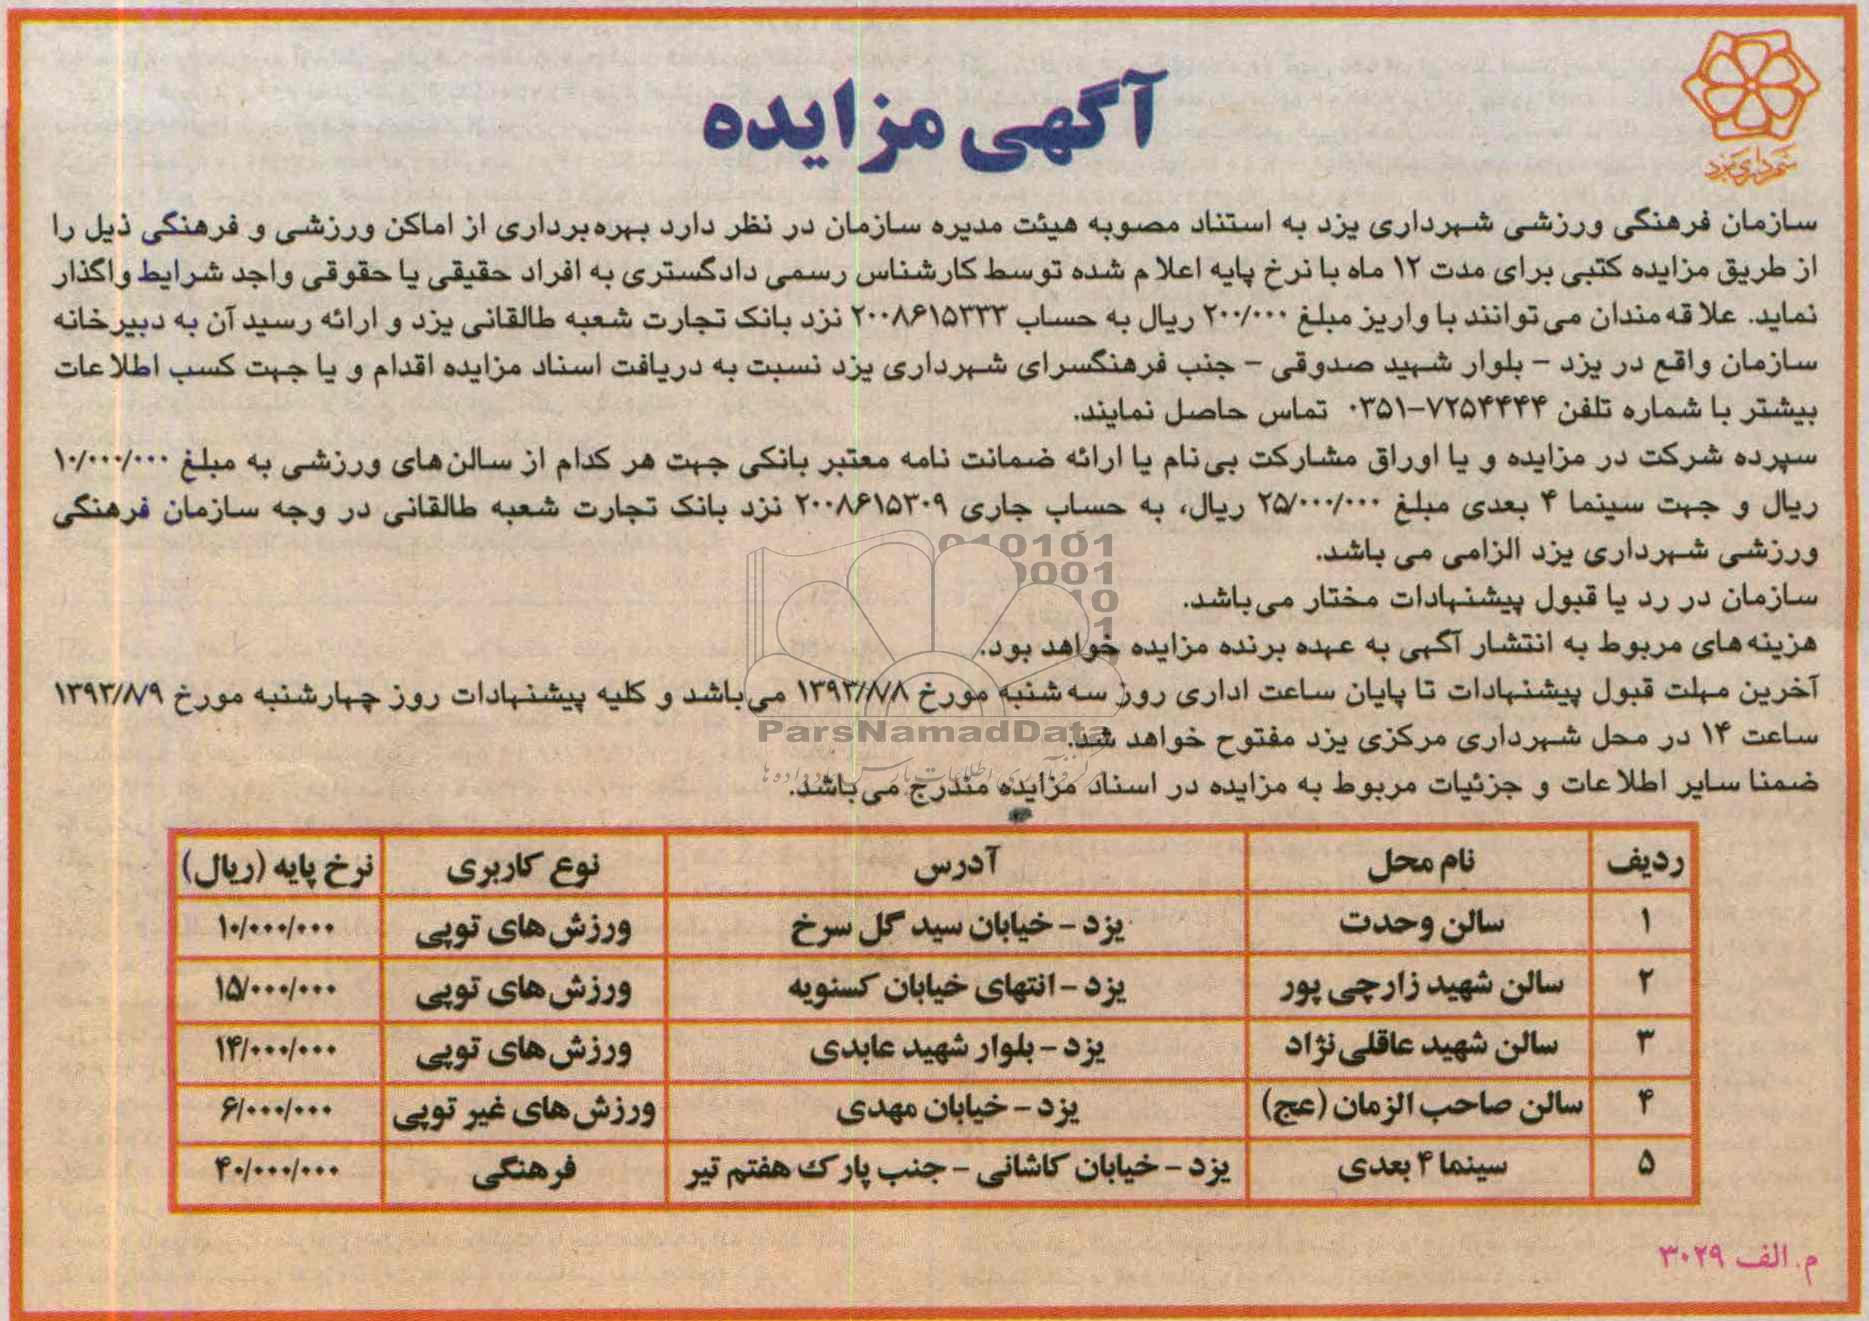 شهرداری یزد
آگهی مزایده
سازمان فرهنگی ورزشی شهرداری یزد به استناد مصوبه هیئت مدیره سازمان در نظر دارد بهره‌برداری از اماکن ورزشی و فرهنگی ذیل را
از طریق مزایده کتبی برای مدت ۱۲ ماه با نرخ پایه اعلام شده توسط کارشناس رسمی دادگستری به افراد حقیقی یا حقوقی واجد شرایط واگذار
نماید. علاقه‌مندان می‌توانند با واریز مبلغ ۲۰۰/۰۰۰ ریال به حساب ۲۰۰۸۶۱۵۳۳۳ نزد بانک تجارت شعبه طالقانی یزد و ارائه رسید آن به دبیرخانه
سازمان واقع در یزد – بلوار شهید صدوقی – جنب فرهنگسرای شهرداری یزد نسبت به دریافت اسناد مزایده اقدام و یا جهت کسب اطلاعات
بیشتر با شماره تلفن ۷۲۵۴۴۴۴-۰۳۵۱ تماس حاصل نمایند.
سپرده شرکت در مزایده و یا اوراق مشارکت بی‌نام یا ارائه ضمانت نامه معتبر بانکی جهت هر کدام از سالن‌های ورزشی به مبلغ ۱۰/۰۰۰/۰۰۰
ریال و جهت سینما ۴ بعدی مبلغ ۲۵/۰۰۰/۰۰۰ ریال، به حساب جاری ۲۰۰۸۶۱۵۳۰۹ نزد بانک تجارت شعبه طالقانی در وجه سازمان فرهنگی
ورزشی شهرداری یزد الزامی می باشد.
سازمان در رد یا قبول پیشنهادات مختار می‌باشد.
هزینه‌های مربوط به انتشار آگهی به عهده برنده مزایده خواهد بود.
آخرین مهلت قبول پیشنهادات تا پایان ساعت اداری روز سه‌شنبه مورخ ۱۳۹۳/۷/۸ می‌باشد و کلیه پیشنهادات روز چهارشنبه مورخ ۱۳۹۳/۷/۹
ساعت ۱۴ در محل شهرداری مرکزی یزد مفتوح خواهد شد.
ضمنا سایر اطلاعات و جزئیات مربوط به مزایده در اسناد مزایده مندرج می‌باشد.
ParsNamadData
ردیف نام محل آدرس نوع کاربری نرخ پایه (ریال)
۱ سالن وحدت یزد – خیابان سید گل سرخ ورزش‌های توپی ۱۰/۰۰۰/۰۰۰
۲ سالن شهید زارچی پور یزد – انتهای خیابان کسنویه ورزش‌های توپی ۱۵/۰۰۰/۰۰۰
۳ سالن شهید عاقلی‌نژاد یزد – بلوار شهید عابدی ورزش‌های توپی ۱۴/۰۰۰/۰۰۰
۴ سالن صاحب الزمان (عج) یزد – خیابان مهدی ورزش‌های غیر توپی ۶/۰۰۰/۰۰۰
۵ سینما ۴ بعدی یزد – خیابان کاشانی – جنب پارک هفتم تیر فرهنگی ۴۰/۰۰۰/۰۰۰
م. الف ۳۰۲۹